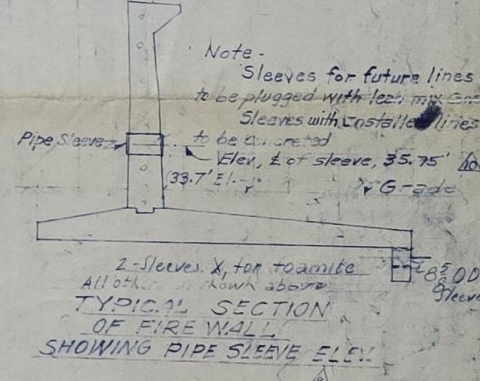 Note -
Sleeves for future lines
to be plugged with lean mix
Sleeves with installed lines
Pipe Sleeve
to be concreted
Elev, ℄ of sleeve, 35.75'
33.7' El.
Grade
2-Sleeves X, for foamite
8⅝ OD
Sleeve
All others as shown above
TYPICAL SECTION
OF FIRE WALL
SHOWING PIPE SLEEVE ELEV.